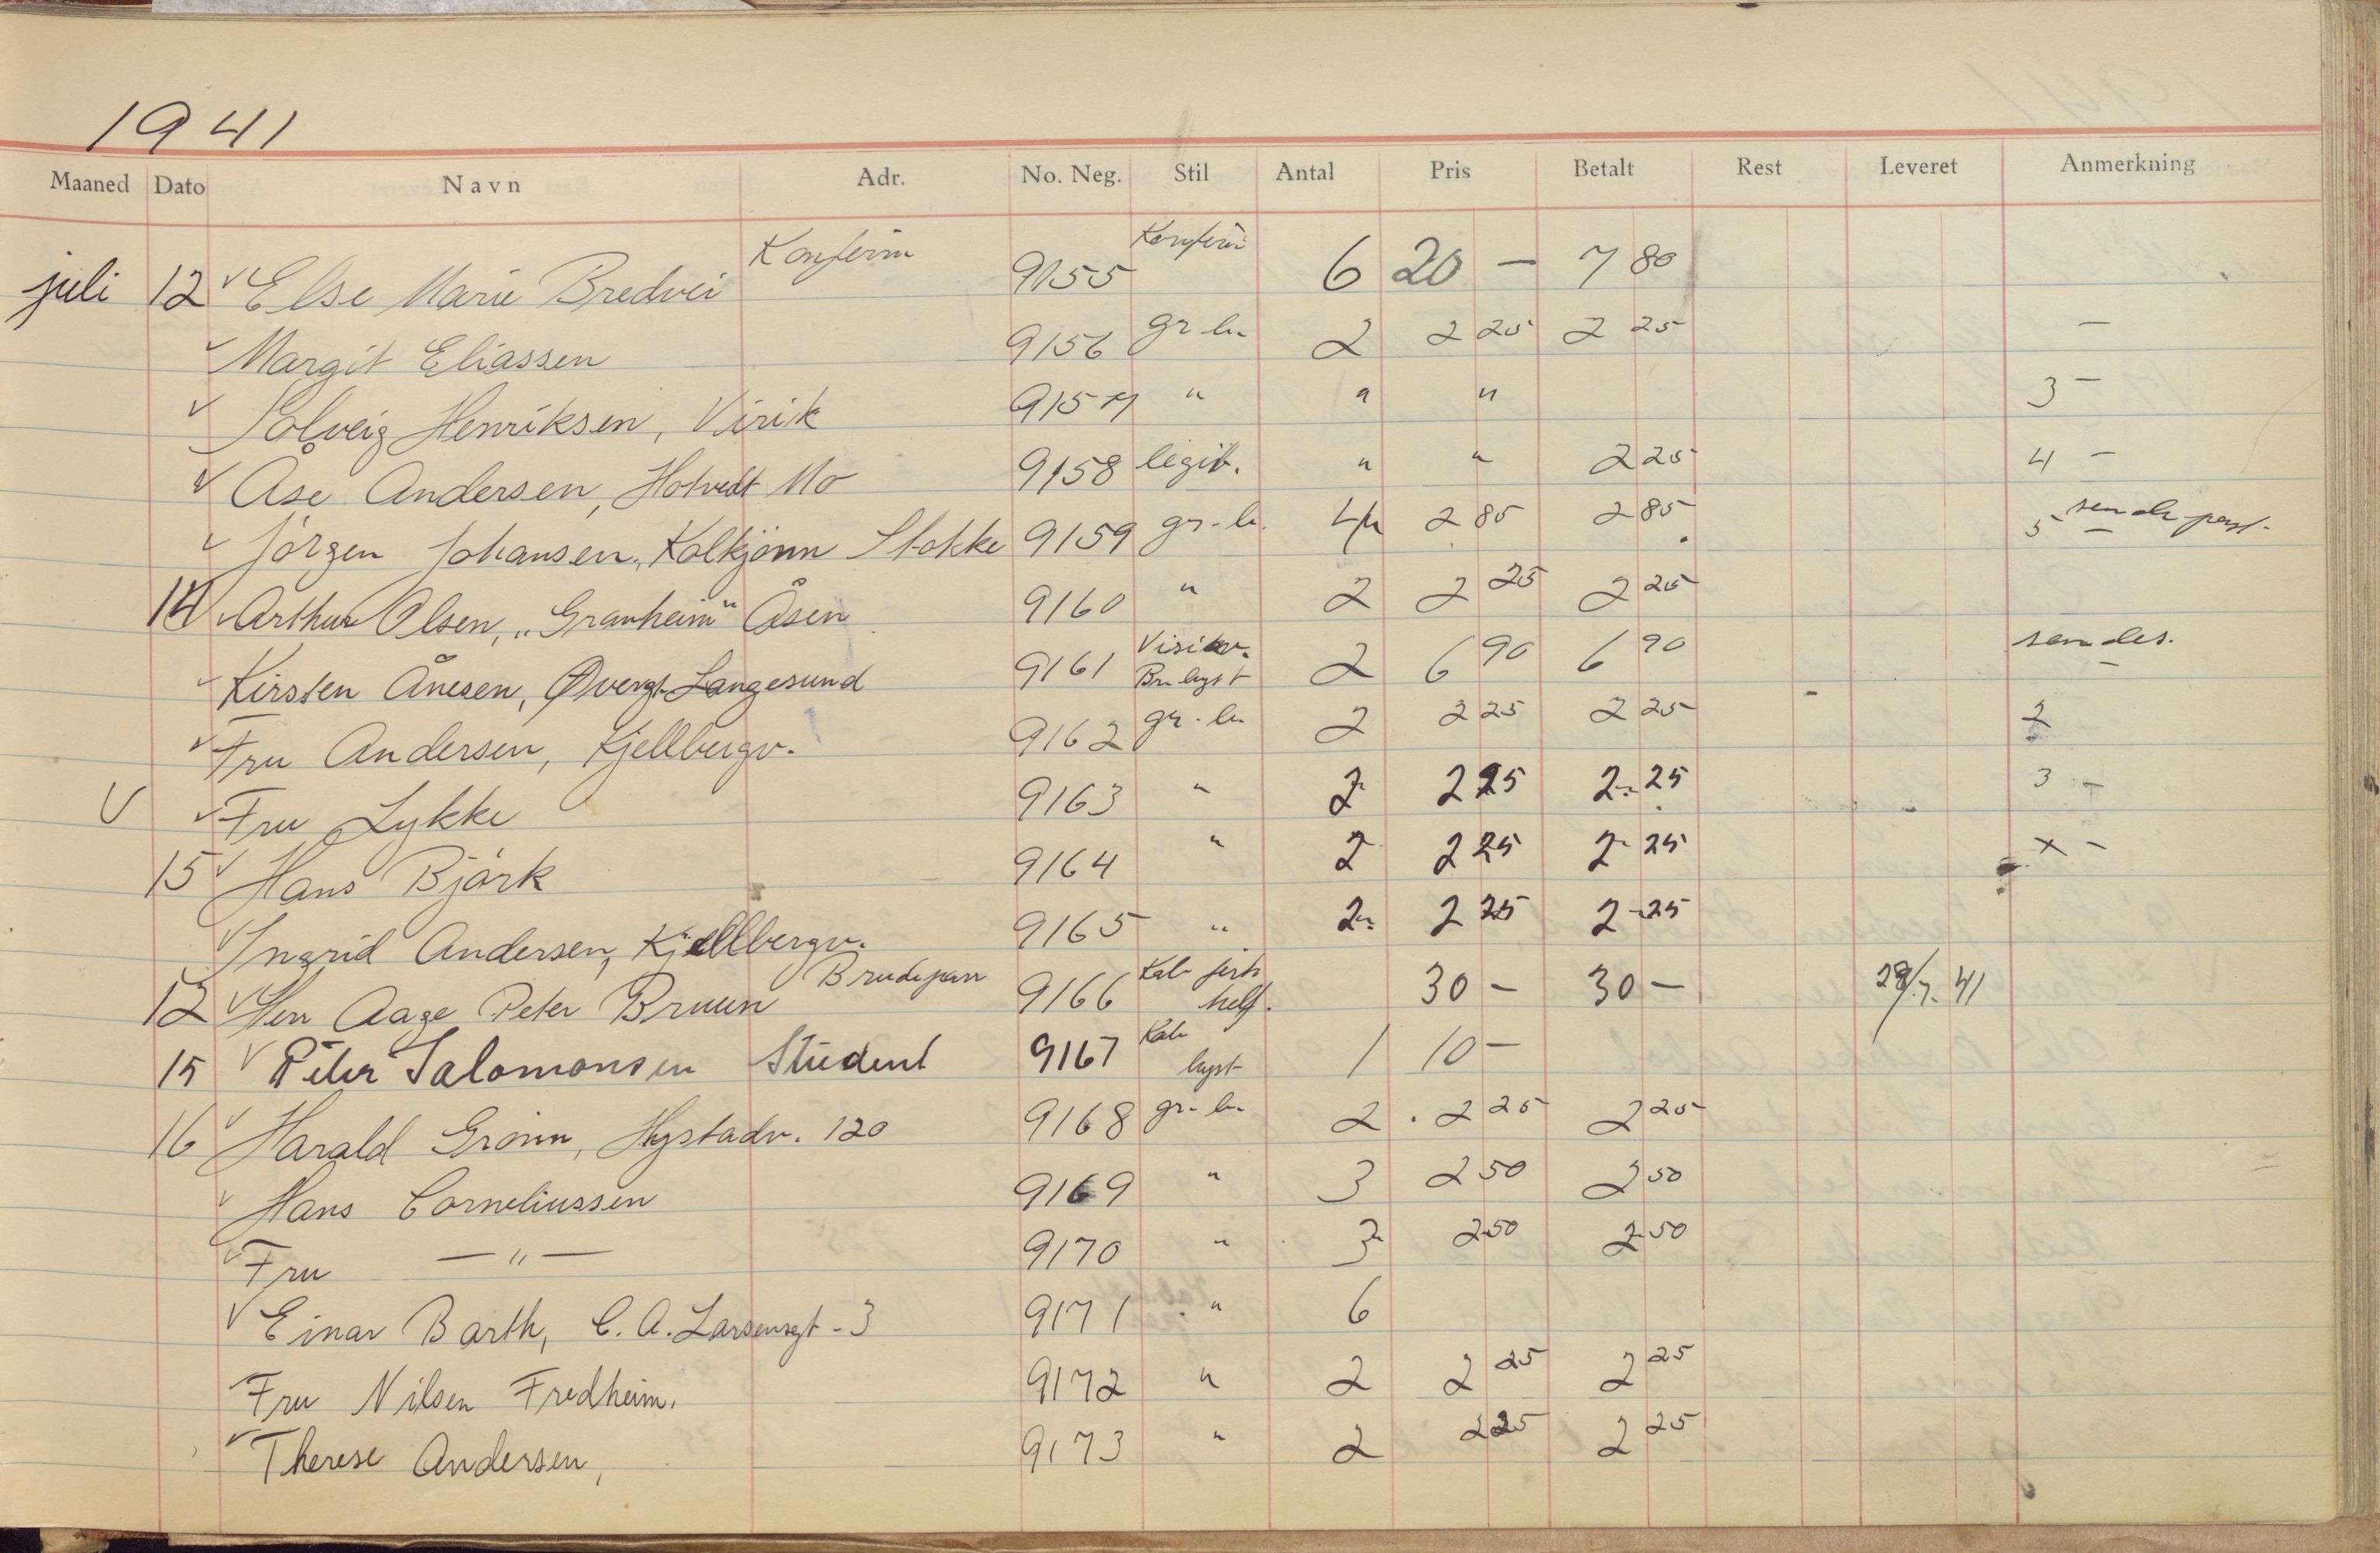 1941
Maaned Dato Navn Adr. No. Neg. Stil Antal Pris Betalt Rest Leveret Anmerkning
juli 12 Else Marie Bredvei Konferm 9155 6 20 — 7 80
Margit Eliassen 9156 gr. br. 2 2 25 2 25 —
Solveig Henriksen, Virik 9157 " " " 3 —
Åse Andersen, Hotvedt Mo 9158 legit. " " 2 25 4 —
Jörgen Johansen, Kolkjönn Stokke 9159 gr. br. 4 2 85 2 85 5 — sendes post.
14 Arthur Olsen, "Granheim" Åsen 9160 " 2 2 25 2 25
Kirsten Ånesen, Øvergt. Langesund 9161 2 6 90 6 90 sendes. —
Fru Andersen, Kjellbergv. 9162 gr. br. 2 2 25 2 25 2
Fru Lykke 9163 " 2 2 25 2 25 3 —
15 Hans Björk 9164 " 2 2 25 2 25 x —
Ingrid Andersen, Kjellbergv. 9165 " 2 2 25 2 25
12 Herr Aage Peter Bruun Brudepar 9166 Kab. 30 — 30 — 29/7. 41
15 Peter Salomonsen Student 9167 Kab. 1 10 —
16 Harald Grönn, Hystadv. 120 9168 gr. br. 2 2 25 2 25
Hans Corneliussen 9169 " 3 2 50 2 50
Fru — " — 9170 " 3 2 50 2 50
Einar Barth, C. A. Larsensgt. 3 9171 " 6
Fru Nilsen Fredheim. 9172 " 2 2 25 2 25
Therese Andersen, 9173 " 2 2 25 2 25